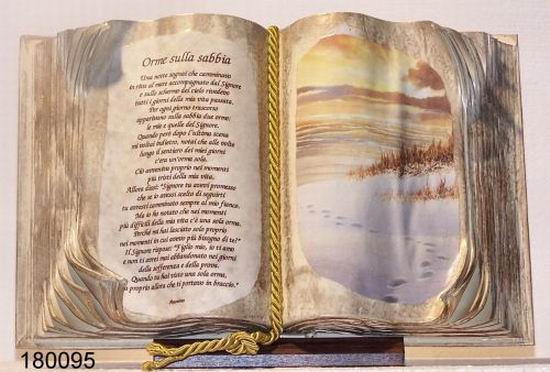 Orme sulla sabbia
Una notte sognai che camminavo
in riva al mare accompagnato dal Signore
e sullo schermo del cielo rivedevo
tutti i giorni della mia vita passata.
Per ogni giorno trascorso
apparivano sulla sabbia due orme:
le mie e quelle del Signore.
Quando però dopo l'ultima scena
mi voltai indietro, notai che alle volte
lungo il sentiero dei miei giorni
c'era un'orma sola.
Ciò avveniva proprio nei momenti
più tristi della mia vita.
Allora dissi: "Signore tu avevi promesso
che se io avessi scelto di seguirti
tu avresti camminato sempre al mio fianco.
Ma io ho notato che nei momenti
più difficili della mia vita c'è una sola orma.
Perché mi hai lasciato solo proprio
nei momenti in cui avevo più bisogno di te?"
Il Signore rispose: "Figlio mio, io ti amo
e non ti avrei mai abbandonato nei giorni
della sofferenza e della prova.
Quando tu hai visto una sola orma,
è proprio allora che ti portavo in braccio."
Anonimo
180095